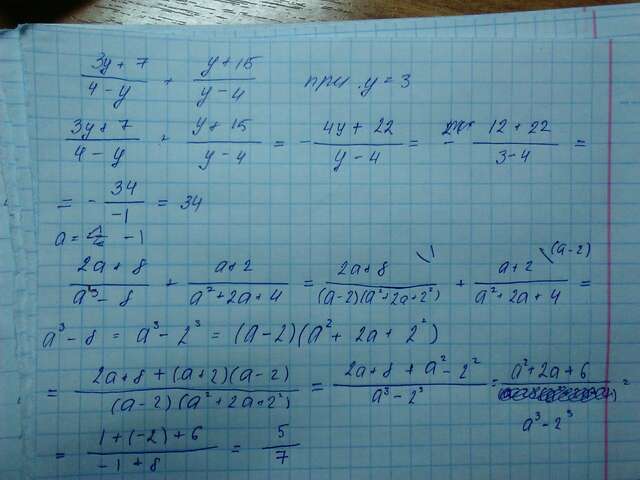 (3y+7)/(4-y) + (y+15)/(y-4) при y=3
(3y+7)/(4-y) + (y+15)/(y-4) = - (4y+22)/(y-4) = - (12+22)/(3-4) =
= - 34/(-1) = 34
a = -1
(2a+8)/(a³-8) + (a+2)/(a²+2a+4) = (2a+8)/((a-2)(a²+2a+2²)) \1 + (a+2)/(a²+2a+4) \(a-2) =
a³-8 = a³-2³ = (a-2)(a²+2a+2²)
= (2a+8+(a+2)(a-2))/((a-2)(a²+2a+2²)) = (2a+8+a²-2²)/(a³-2³) = (a²+2a+6)/(a³-2³)
= (1+(-2)+6)/(-1+8) = 5/7